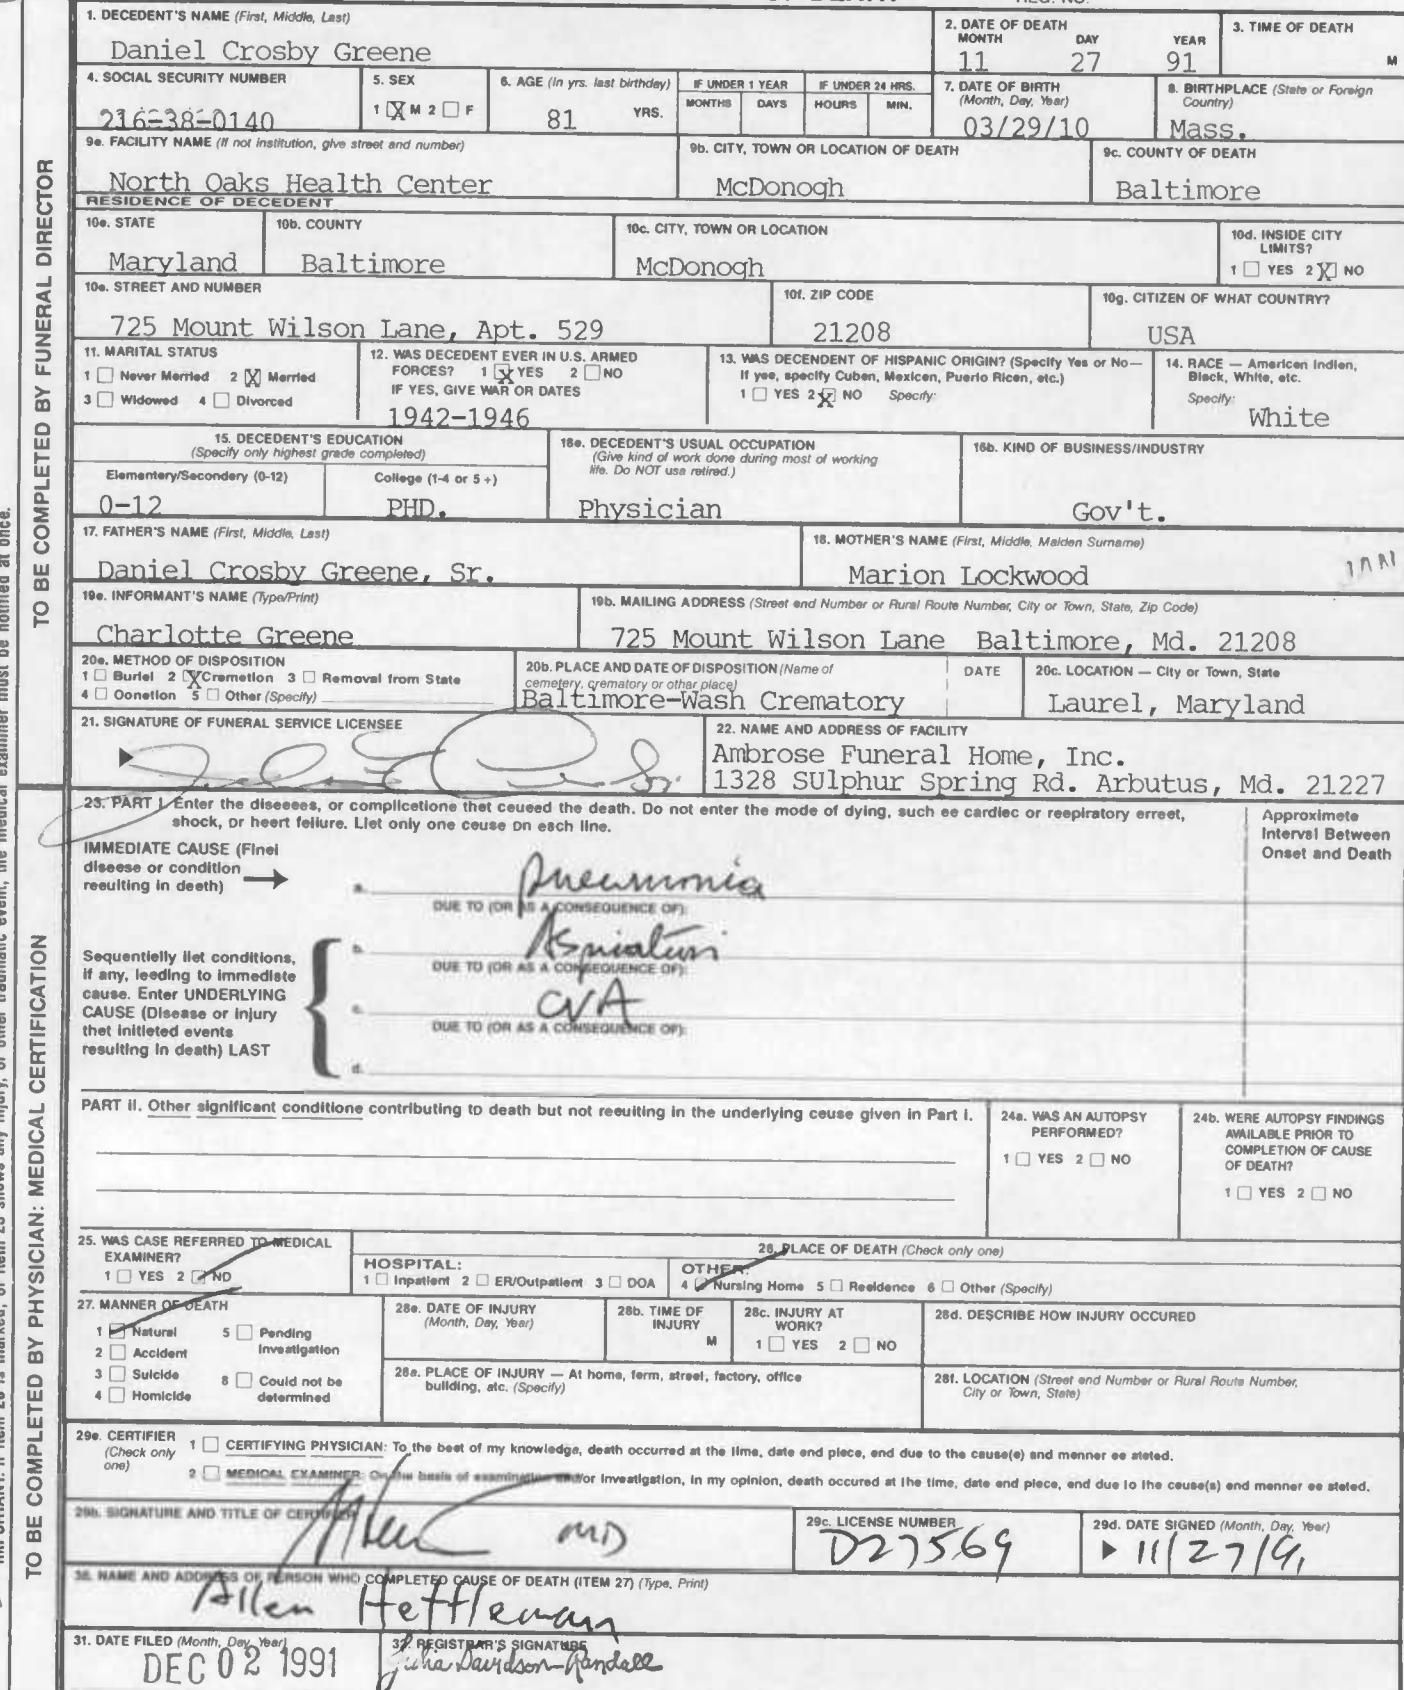 1. DECEDENT'S NAME (First, Middle, Last)
Daniel Crosby Greene
2. DATE OF DEATH
MONTH DAY YEAR
11 27 91
3. TIME OF DEATH
M
4. SOCIAL SECURITY NUMBER
216-38-0140
5. SEX
1 X M 2 F
6. AGE (In yrs. last birthday)
81 YRS.
IF UNDER 1 YEAR
MONTHS DAYS
IF UNDER 24 HRS.
HOURS MIN.
7. DATE OF BIRTH
(Month, Day, Year)
03/29/10
8. BIRTHPLACE (State or Foreign
Country)
Mass.
9a. FACILITY NAME (If not institution, give street and number)
North Oaks Health Center
9b. CITY, TOWN OR LOCATION OF DEATH
McDonogh
9c. COUNTY OF DEATH
Baltimore
RESIDENCE OF DECEDENT
10a. STATE
Maryland
10b. COUNTY
Baltimore
10c. CITY, TOWN OR LOCATION
McDonogh
10d. INSIDE CITY
LIMITS?
1 YES 2 X NO
10e. STREET AND NUMBER
725 Mount Wilson Lane, Apt. 529
10f. ZIP CODE
21208
10g. CITIZEN OF WHAT COUNTRY?
USA
11. MARITAL STATUS
1 Never Married 2 X Married
3 Widowed 4 Divorced
12. WAS DECEDENT EVER IN U.S. ARMED
FORCES? 1 X YES 2 NO
IF YES, GIVE WAR OR DATES
1942-1946
13. WAS DECENDENT OF HISPANIC ORIGIN? (Specify Yes or No—
If yes, specify Cuban, Mexican, Puerto Rican, etc.)
1 YES 2 X NO Specify:
14. RACE — American Indian,
Black, White, etc.
Specify:
White
15. DECEDENT'S EDUCATION
(Specify only highest grade completed)
Elementary/Secondary (0-12)
0-12
College (1-4 or 5+)
PHD.
16a. DECEDENT'S USUAL OCCUPATION
(Give kind of work done during most of working
life. Do NOT use retired.)
Physician
16b. KIND OF BUSINESS/INDUSTRY
Gov't.
17. FATHER'S NAME (First, Middle, Last)
Daniel Crosby Greene, Sr.
18. MOTHER'S NAME (First, Middle, Maiden Surname)
Marion Lockwood
19a. INFORMANT'S NAME (Type/Print)
Charlotte Greene
19b. MAILING ADDRESS (Street and Number or Rural Route Number, City or Town, State, Zip Code)
725 Mount Wilson Lane Baltimore, Md. 21208
20a. METHOD OF DISPOSITION
1 Burial 2 X Cremation 3 Removal from State
4 Donation 5 Other (Specify)
20b. PLACE AND DATE OF DISPOSITION (Name of
cemetery, crematory or other place)
Baltimore-Wash Crematory
DATE
20c. LOCATION — City or Town, State
Laurel, Maryland
21. SIGNATURE OF FUNERAL SERVICE LICENSEE
22. NAME AND ADDRESS OF FACILITY
Ambrose Funeral Home, Inc.
1328 SUlphur Spring Rd. Arbutus, Md. 21227
TO BE COMPLETED BY FUNERAL DIRECTOR
23. PART I. Enter the diseases, or complications that caused the death. Do not enter the mode of dying, such as cardiac or respiratory arrest,
shock, or heart failure. List only one cause on each line.
Approximate
Interval Between
Onset and Death
IMMEDIATE CAUSE (Final
disease or condition
resulting in death)
a. Pneumonia
DUE TO (OR AS A CONSEQUENCE OF):
Sequentially list conditions,
if any, leading to immediate
cause. Enter UNDERLYING
CAUSE (Disease or injury
that initiated events
resulting in death) LAST
b. Aspiration
DUE TO (OR AS A CONSEQUENCE OF):
c. CVA
DUE TO (OR AS A CONSEQUENCE OF):
d.
PART II. Other significant conditions contributing to death but not resulting in the underlying cause given in Part I.
24a. WAS AN AUTOPSY
PERFORMED?
1 YES 2 NO
24b. WERE AUTOPSY FINDINGS
AVAILABLE PRIOR TO
COMPLETION OF CAUSE
OF DEATH?
1 YES 2 NO
25. WAS CASE REFERRED TO MEDICAL
EXAMINER?
1 YES 2 NO
26. PLACE OF DEATH (Check only one)
HOSPITAL:
1 Inpatient 2 ER/Outpatient 3 DOA
OTHER:
4 Nursing Home 5 Residence 6 Other (Specify)
27. MANNER OF DEATH
1 Natural 5 Pending
Investigation
2 Accident
3 Suicide 8 Could not be
determined
4 Homicide
28a. DATE OF INJURY
(Month, Day, Year)
28b. TIME OF
INJURY
M
28c. INJURY AT
WORK?
1 YES 2 NO
28d. DESCRIBE HOW INJURY OCCURED
28e. PLACE OF INJURY — At home, farm, street, factory, office
building, etc. (Specify)
28f. LOCATION (Street and Number or Rural Route Number,
City or Town, State)
29a. CERTIFIER
(Check only
one)
1 CERTIFYING PHYSICIAN: To the best of my knowledge, death occurred at the time, date and place, and due to the cause(s) and manner as stated.
2 MEDICAL EXAMINER: On the basis of examination and/or investigation, in my opinion, death occured at the time, date and place, and due to the cause(s) and manner as stated.
29b. SIGNATURE AND TITLE OF CERTIFIER
MD
29c. LICENSE NUMBER
D27569
29d. DATE SIGNED (Month, Day, Year)
11/27/91
30. NAME AND ADDRESS OF PERSON WHO COMPLETED CAUSE OF DEATH (ITEM 27) (Type, Print)
Allen Heffleman
31. DATE FILED (Month, Day, Year)
DEC 02 1991
32. REGISTRAR'S SIGNATURE
Julia Davidson-Randall
TO BE COMPLETED BY PHYSICIAN: MEDICAL CERTIFICATION